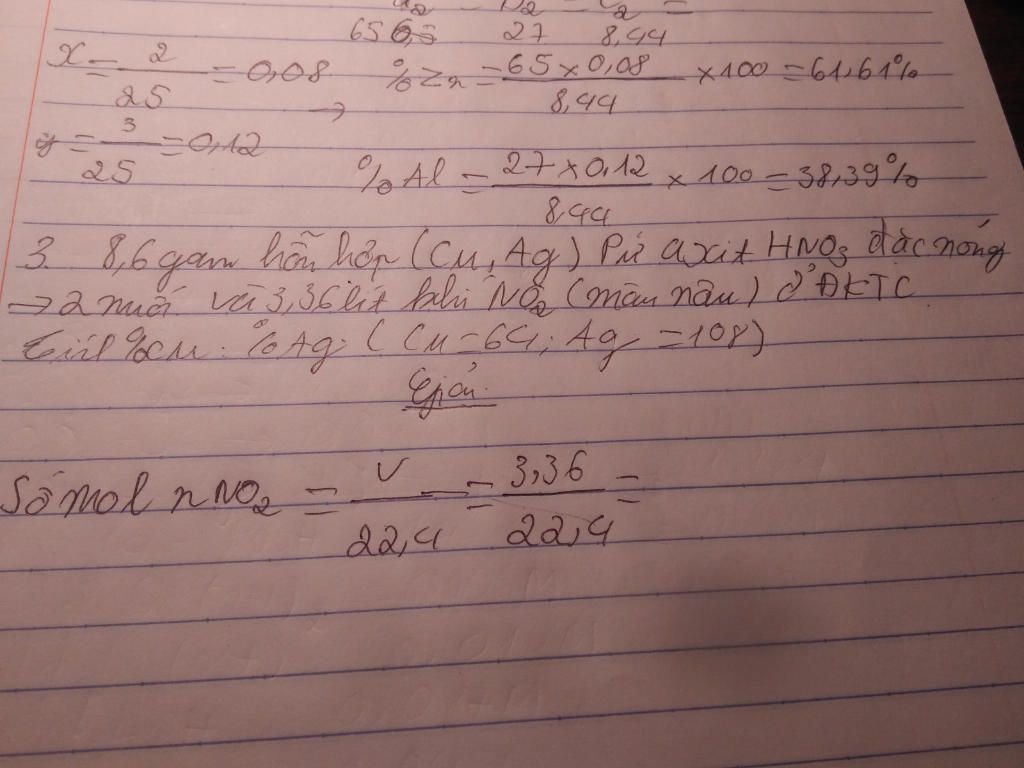 65 27 8,44
x = 2/25 = 0,08 → %Zn = 65 x 0,08 / 8,44 x 100 = 61,61%
y = 3/25 = 0,12
%Al = 27 x 0,12 / 8,44 x 100 = 38,39%
3. 8,6 gam hỗn hợp (Cu, Ag) Pứ axit HNO3 đặc nóng
→ 2 muối và 3,36 lít khí NO2 (màu nâu) ở ĐKTC
%Cu. %Ag. (Cu = 64; Ag = 108)
Giải
Số mol nNO2 = V/22,4 = 3,36/22,4 =